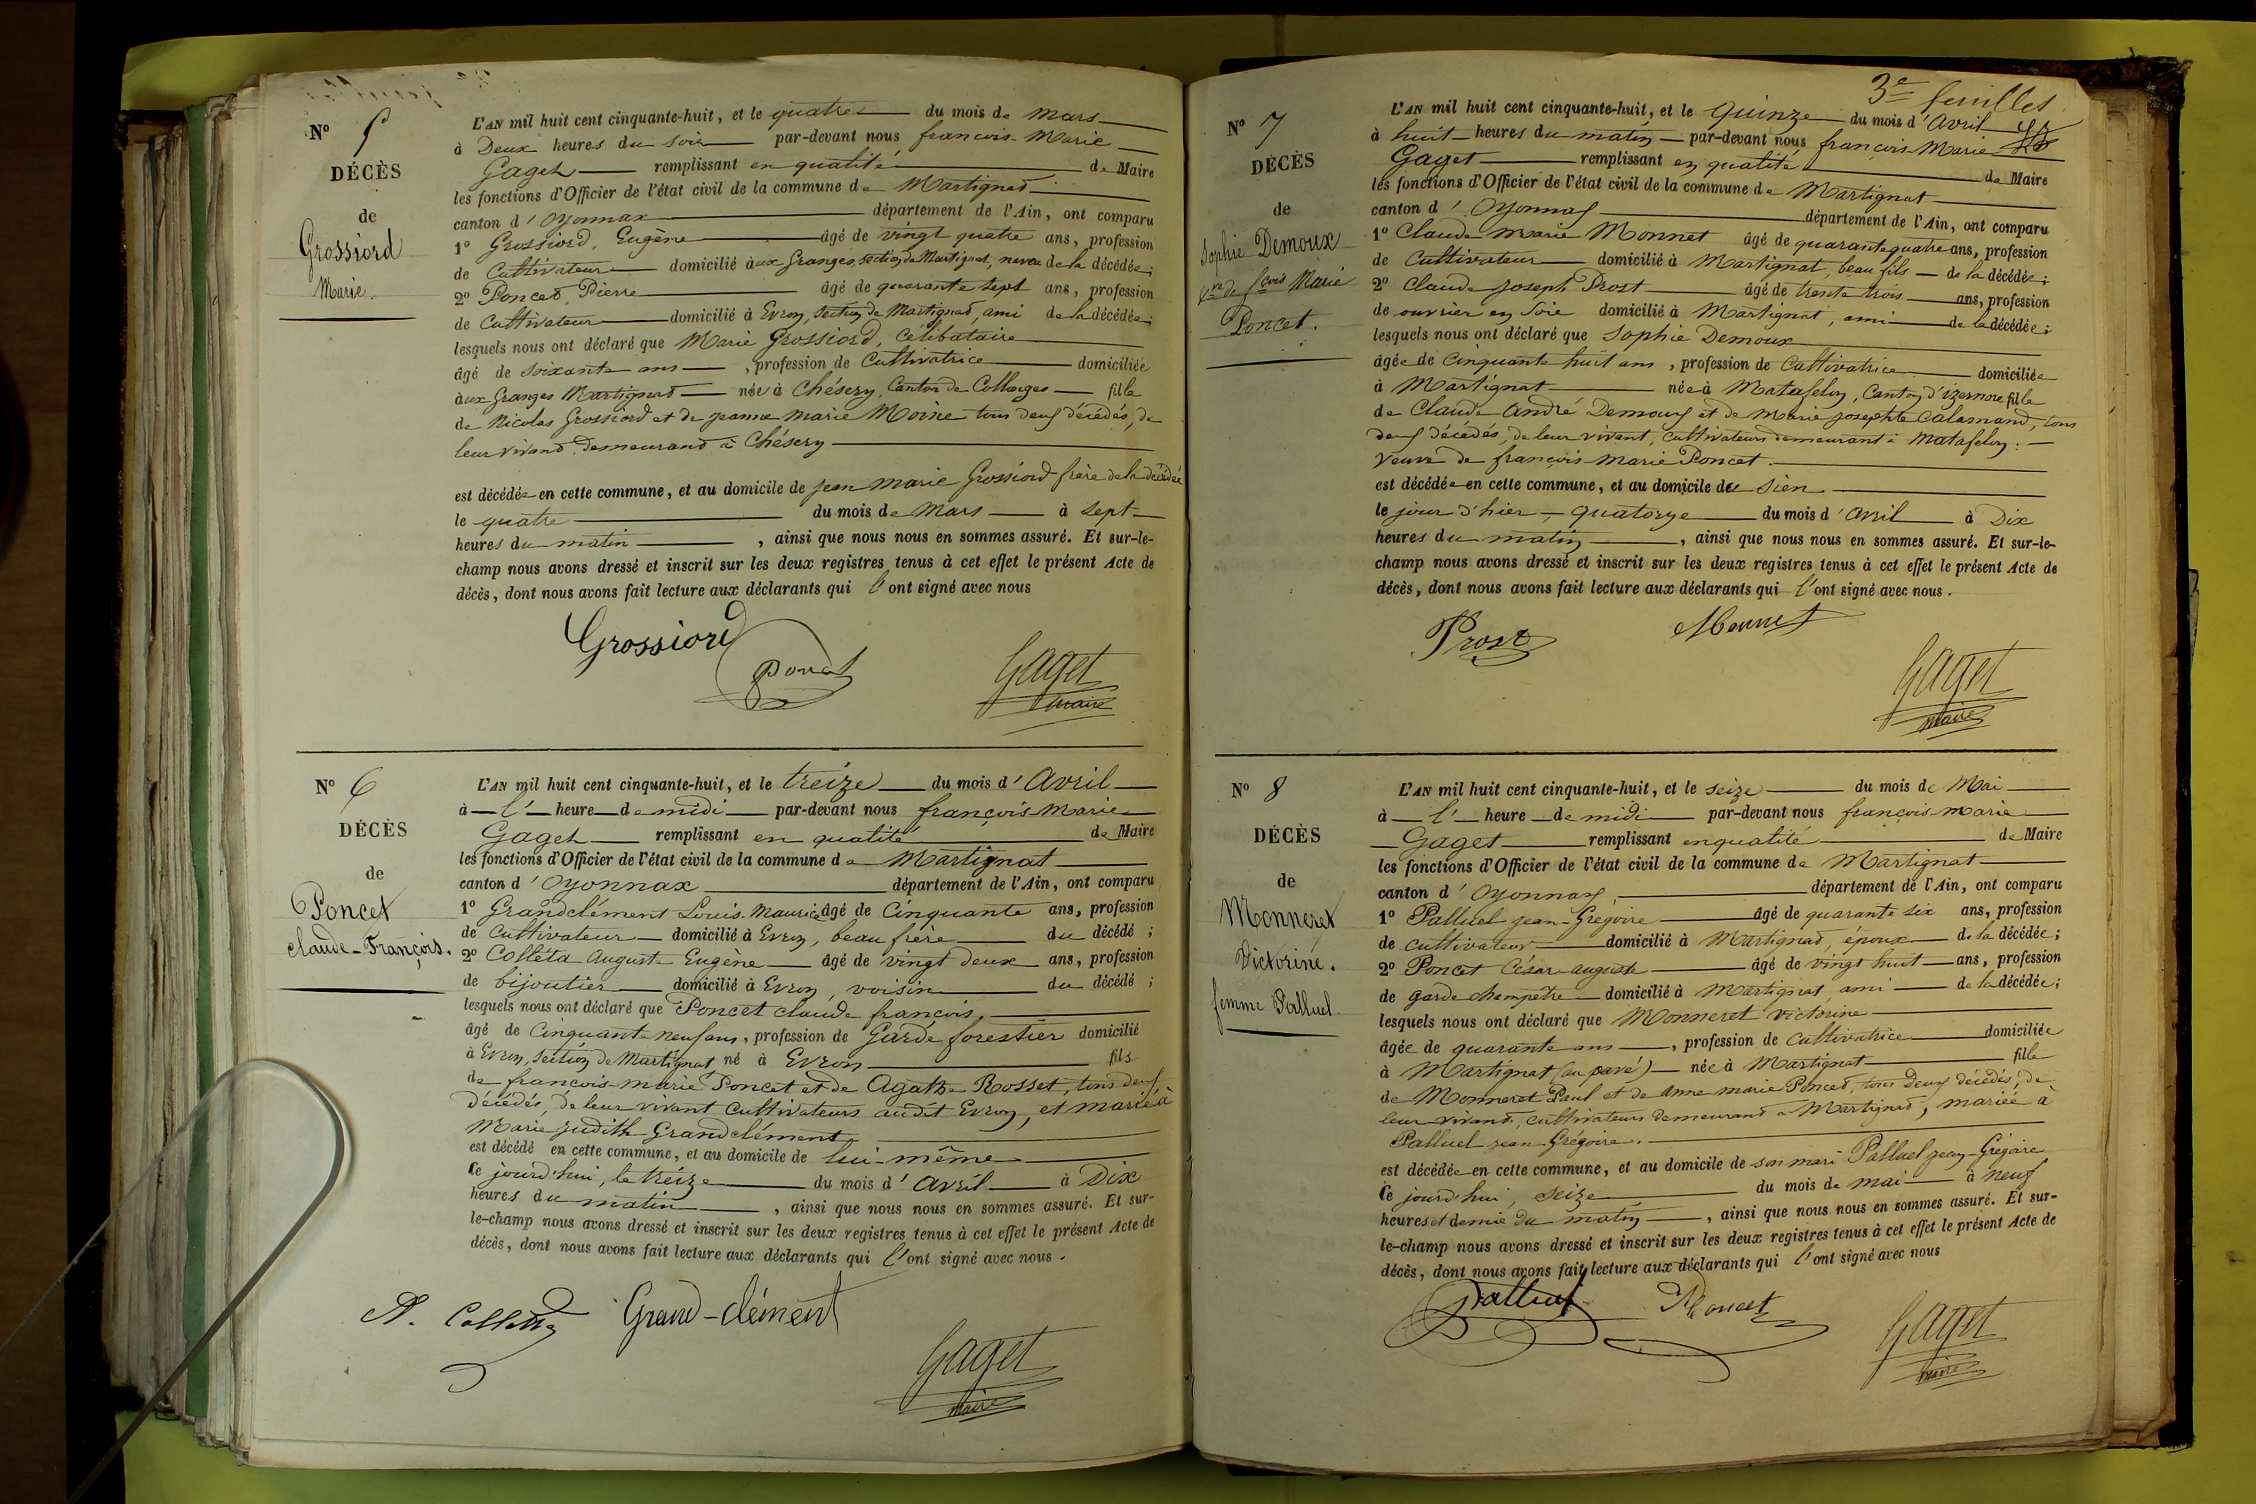 Nº 5
DÉCÈS
de
Grossiord
Marie.
L'AN mil huit cent cinquante-huit, et le quatre du mois de Mars
à Deux heures du soir par-devant nous françois-Marie
Gaget remplissant en qualité de Maire
les fonctions d'Officier de l'état civil de la commune de Martignat
canton d'Oyonnax département de l'Ain, ont comparu
1º Grossiord, Eugène âgé de vingt quatre ans, profession
de Cultivateur domicilié aux Granges, section de Martignat, neveu de la décédée;
2º Poncet, Pierre âgé de quarante sept ans, profession
de Cultivateur domicilié à Evron, section de Martignat, ami de la décédée;
lesquels nous ont déclaré que Marie Grossiord, Célibataire
âgé de soixante ans, profession de Cultivatrice domiciliée
aux Granges Martignat née à Chésery, Canton de Collonges fille
de Nicolas Grossiord et de jeanne marie Moine tous deux décédés, de
leur vivant demeurand à Chésery
est décédée en cette commune, et au domicile de jean Marie Grossiord frère de la décédée
le quatre du mois de Mars à sept
heures du matin, ainsi que nous nous en sommes assuré. Et sur-le-
champ nous avons dressé et inscrit sur les deux registres tenus à cet effet le présent Acte de
décès, dont nous avons fait lecture aux déclarants qui l'ont signé avec nous
Grossiord
Poncet
Gaget
maire
Nº 6
DÉCÈS
de
Poncet
claude-François.
L'AN mil huit cent cinquante-huit, et le treize du mois d'Avril
à l' heure de midi par-devant nous françois-Marie
Gaget remplissant en qualité de Maire
les fonctions d'Officier de l'état civil de la commune de Martignat
canton d'Oyonnax département de l'Ain, ont comparu
1º Grandclément Louis-Maurice âgé de Cinquante ans, profession
de Cultivateur domicilié à Evron, beau frère du décédé;
2º Colleta Auguste Eugène âgé de vingt deux ans, profession
de bijoutier domicilié à Evron, voisin du décédé;
lesquels nous ont déclaré que Poncet claude françois,
âgé de Cinquante neuf ans, profession de Garde forestier domicilié
à Evron, section de Martignat né à Evron fils
de françois-marie Poncet et de Agathe Rosset, tous deux
décédés, de leur vivant cultivateurs audit Evron, et marié à
Marie judith Grandclément
est décédé en cette commune, et au domicile de lui-même
Ce jourd'hui, le treize du mois d'Avril à Dix
heures du matin, ainsi que nous nous en sommes assuré. Et sur-
le-champ nous avons dressé et inscrit sur les deux registres tenus à cet effet le présent Acte de
décès, dont nous avons fait lecture aux déclarants qui l'ont signé avec nous.
A. Colletta Grand-clément
Gaget
maire
3e feuilles
Nº 7
DÉCÈS
de
Sophie Demoux
Vve de fçois Marie
Poncet.
L'AN mil huit cent cinquante-huit, et le Quinze du mois d'Avril
à huit heures du matin par-devant nous françois-Marie
Gaget remplissant en qualité de Maire
les fonctions d'Officier de l'état civil de la commune de Martignat
canton d'Oyonnax département de l'Ain, ont comparu
1º Claude Marie Monnet âgé de quarante quatre ans, profession
de Cultivateur domicilié à Martignat, beau fils de la décédée;
2º Claude joseph Prost âgé de trente trois ans, profession
de ouvrier en soie domicilié à Martignat, ami de la décédée;
lesquels nous ont déclaré que Sophie Demoux
âgée de Cinquante huit ans, profession de Cultivatrice domiciliée
à Martignat née à Matafelon, Canton d'izernore fille
de Claude André Demoux et de Marie josephte Calamand, tous
deux décédés, de leur vivant, cultivateurs demeurant à Matafelon.
Veuve de françois Marie Poncet.
est décédée en cette commune, et au domicile du sien
le jour d'hier, quatorze du mois d'Avril à Dix
heures du matin, ainsi que nous nous en sommes assuré. Et sur-le-
champ nous avons dressé et inscrit sur les deux registres tenus à cet effet le présent Acte de
décès, dont nous avons fait lecture aux déclarants qui l'ont signé avec nous.
Prost Monnet
Gaget
maire
Nº 8
DÉCÈS
de
Monneret
Victorine.
femme Palluel
L'AN mil huit cent cinquante-huit, et le seize du mois de Mai
à l' heure de midi par-devant nous françois-marie
Gaget remplissant en qualité de Maire
les fonctions d'Officier de l'état civil de la commune de Martignat
canton d'Oyonnax, département de l'Ain, ont comparu
1º Palluel jean-Grégoire âgé de quarante six ans, profession
de cultivateur domicilié à Martignat, époux de la décédée;
2º Poncet César-auguste âgé de vingt huit ans, profession
de garde champêtre domicilié à Martignat, ami de la décédée;
lesquels nous ont déclaré que Monneret victorine
âgée de quarante ans, profession de cultivatrice domiciliée
à Martignat (au pavé) née à Martignat fille
de Monneret Paul et de Anne marie Poncet, tous deux décédés, de
leur vivant, cultivateurs demeurand à Martignat, mariée à
Palluel jean-Grégoire.
est décédée en cette commune, et au domicile de son mari Palluel jean-Grégoire
Ce jourd'hui, seize du mois de mai à neuf
heures et demie du matin, ainsi que nous nous en sommes assuré. Et sur-
le-champ nous avons dressé et inscrit sur les deux registres tenus à cet effet le présent Acte de
décès, dont nous avons fait lecture aux déclarants qui l'ont signé avec nous
Palluel Poncet
Gaget
maire